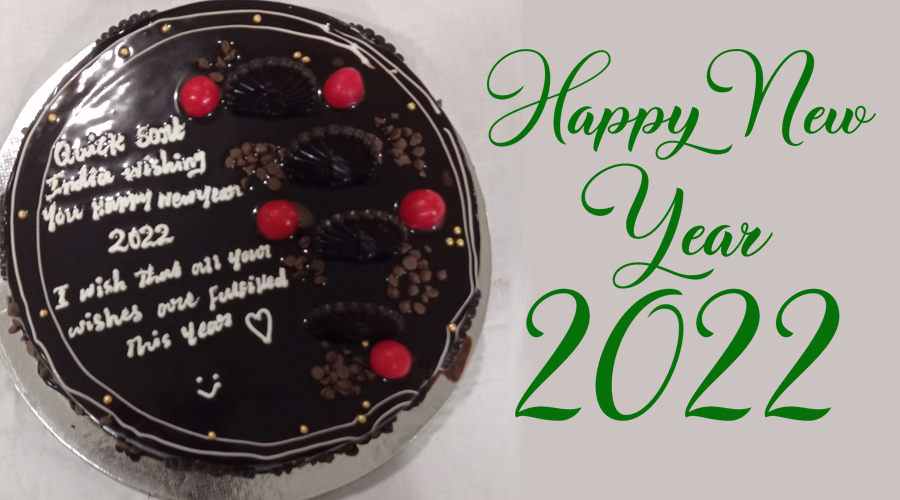 Quick Sort
India wishing
You Happy New Year
2022
I wish that all your
wishes are Fulfilled
This Year
Happy New
Year
2022